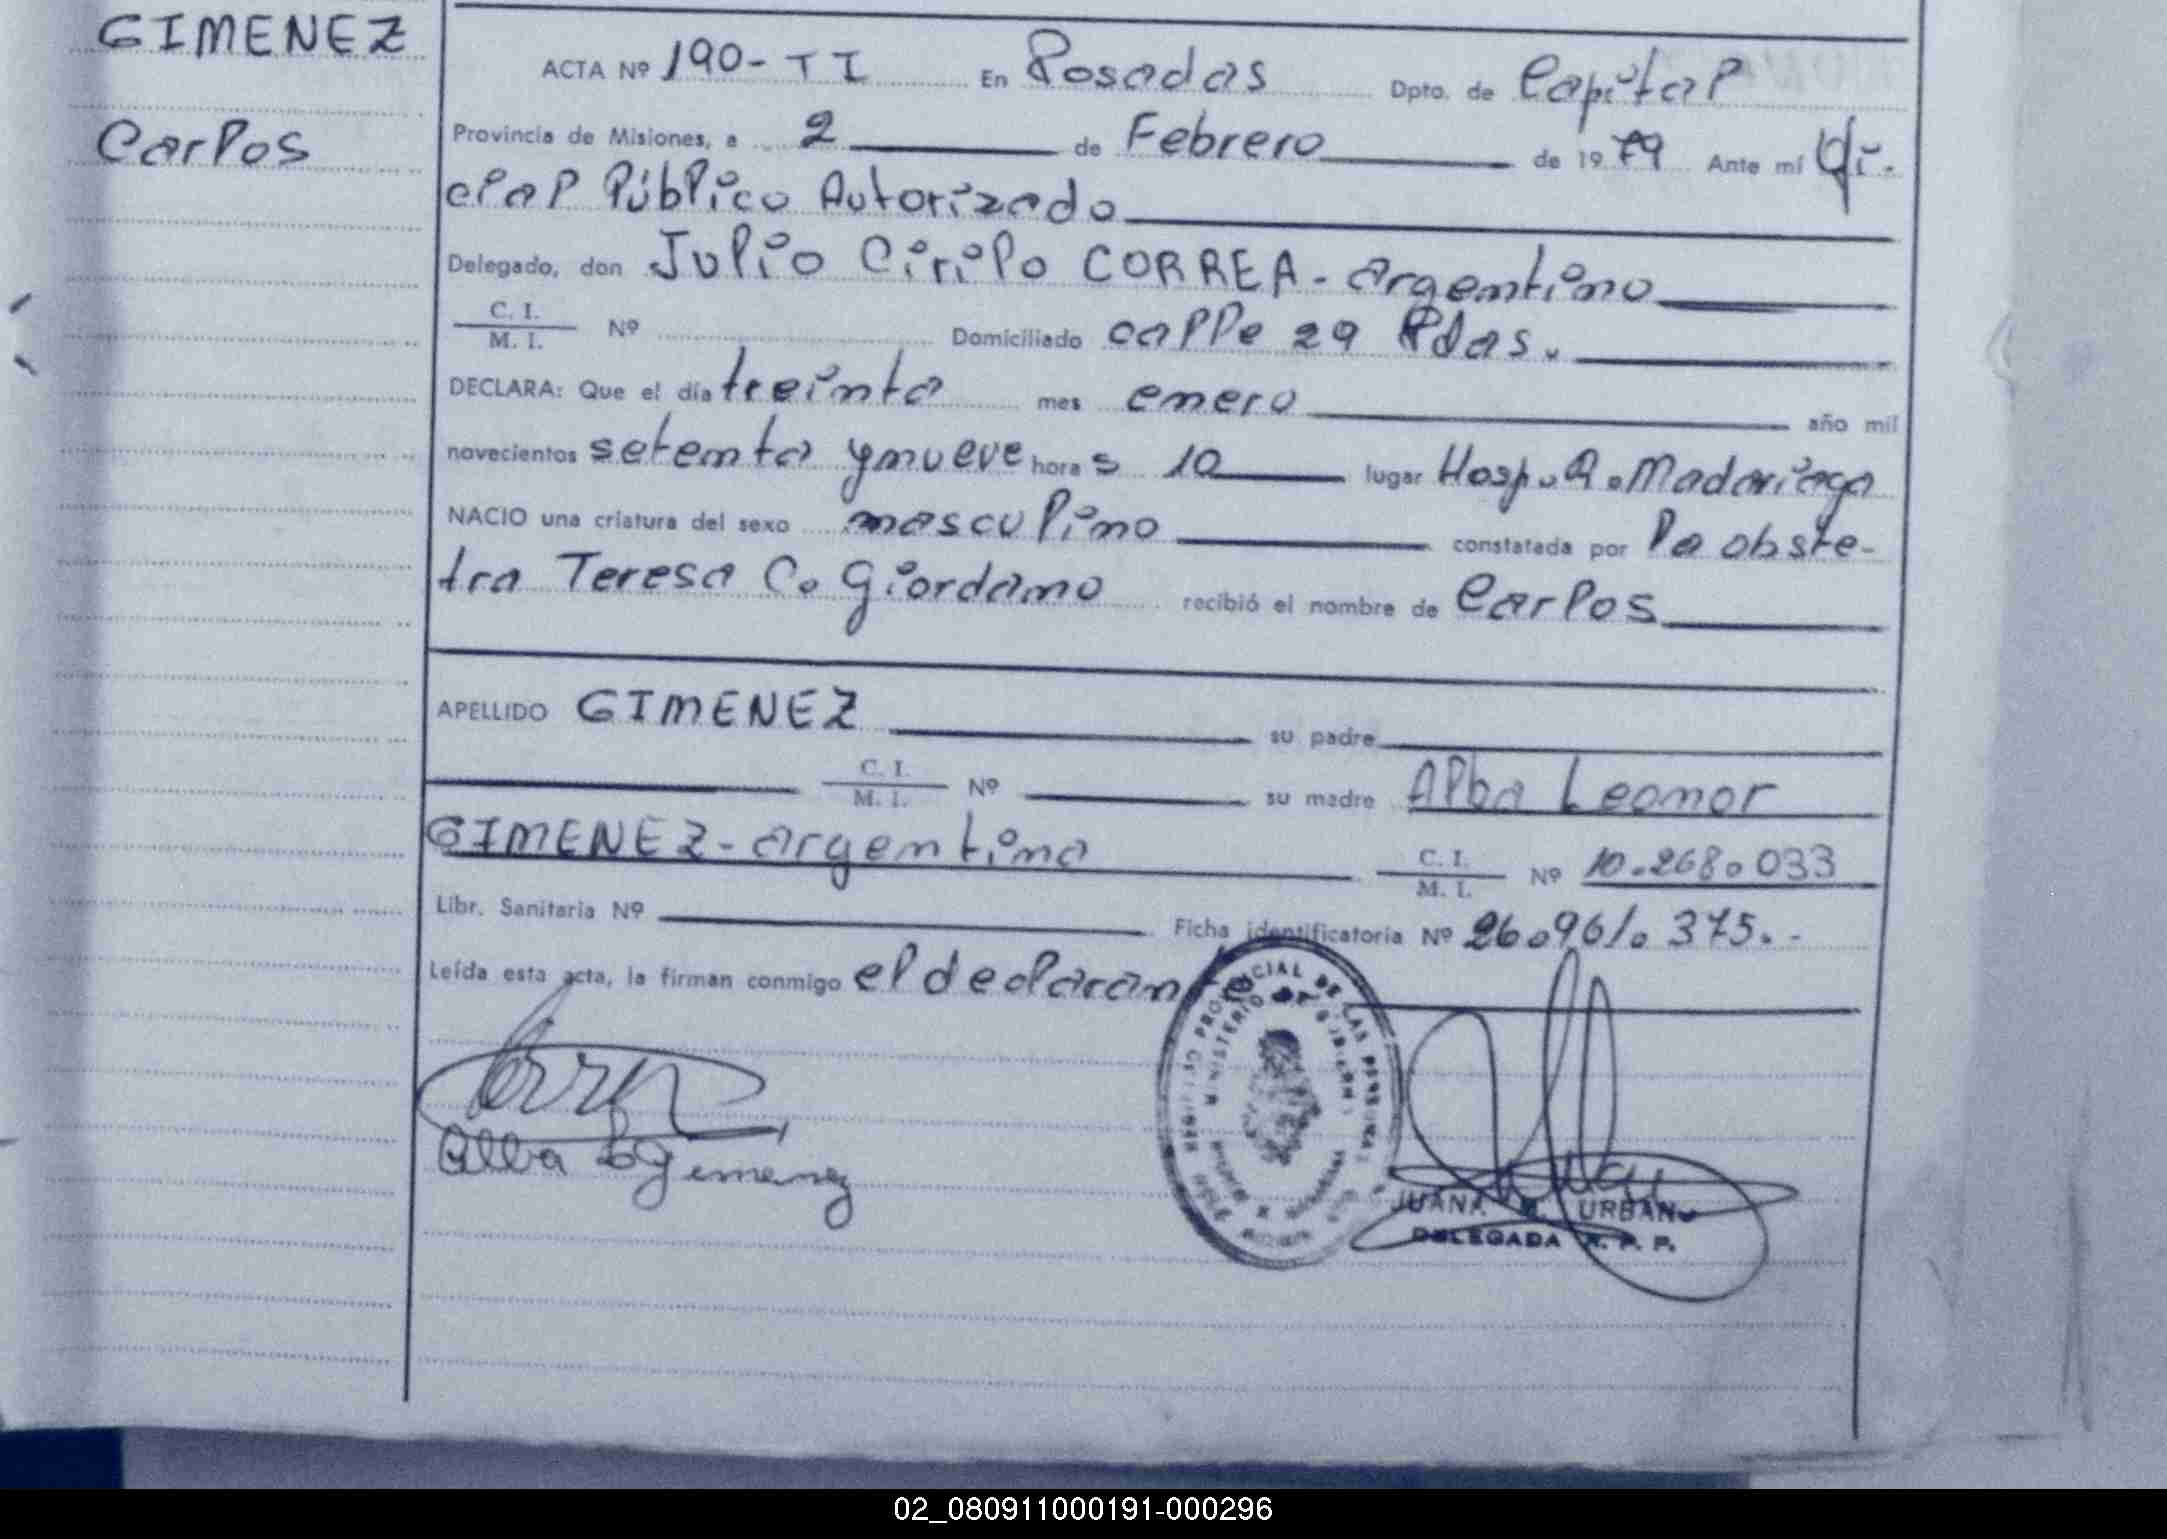 GIMENEZ
Carlos
ACTA Nº 190-TI En Posadas Dpto. de Capital
Provincia de Misiones, a 2 de Febrero de 1979 Ante mí Ofi-
cial Público Autorizado
Delegado, don Julio Cirilo CORREA - argentino
C. I.
M. I. Nº Domiciliado calle 29 Pdas.
DECLARA: Que el día treinta mes enero año mil
novecientos setenta y nueve horas 10 lugar Hosp. R. Madariaga
NACIO una criatura del sexo masculino constatada por la obste-
tra Teresa C. Giordano recibió el nombre de Carlos
APELLIDO GIMENEZ su padre
C. I.
M. I. Nº su madre Alba Leonor
GIMENEZ - argentina C. I.
M. I. Nº 10.268.033
Libr. Sanitaria Nº Ficha identificatoria Nº 26.961.375.-
Leída esta acta, la firman conmigo el declarante
Alba L Gimenez
JUANA M. URBAN
DELEGADA R. P. P.
02_080911000191-000296